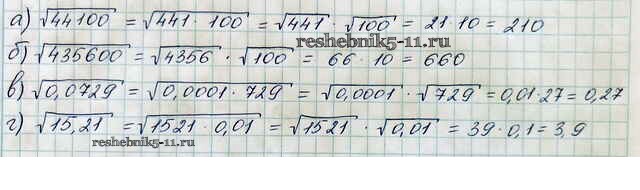 а) √44100 = √441 · 100 = √441 · √100 = 21 · 10 = 210
reshebnik5-11.ru
б) √435600 = √4356 · √100 = 66 · 10 = 660
в) √0,0729 = √0,0001 · 729 = √0,0001 · √729 = 0,01 · 27 = 0,27
г) √15,21 = √1521 · 0,01 = √1521 · √0,01 = 39 · 0,1 = 3,9
reshebnik5-11.ru